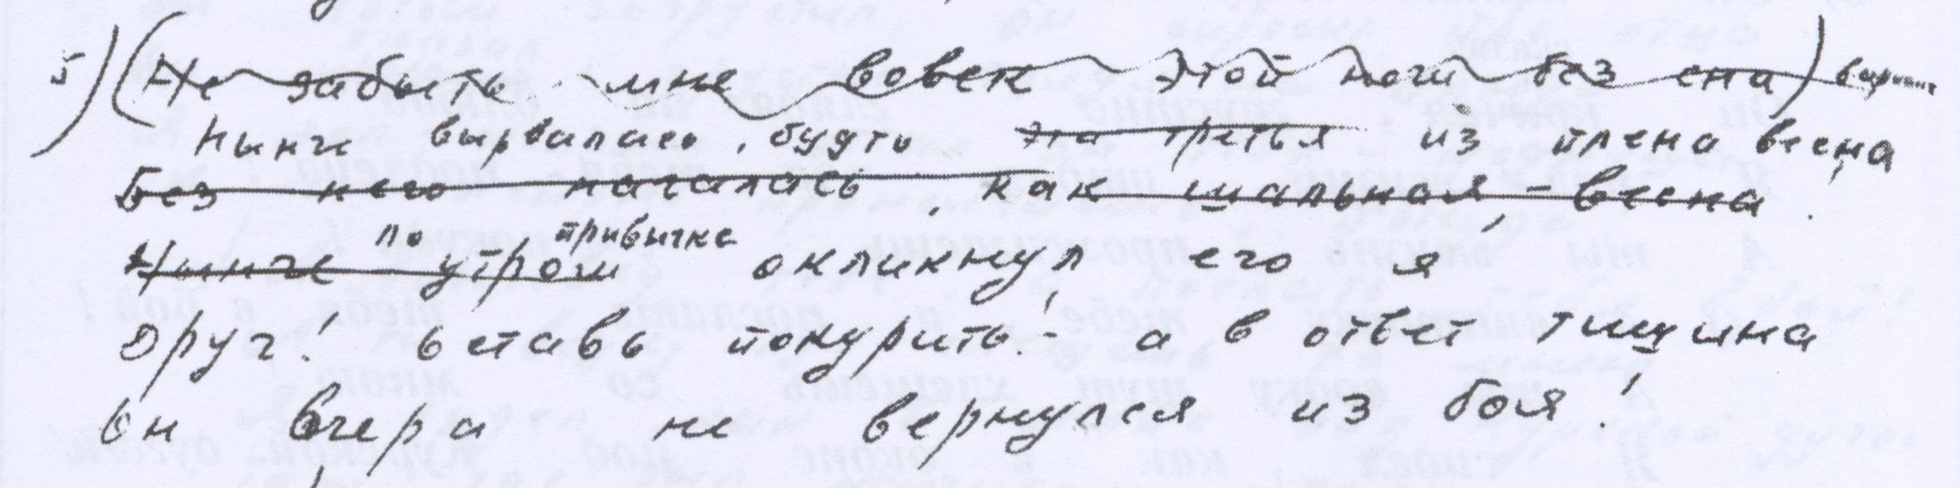 5) (Не забыть мне вовек этой ночи без сна)
Нынче вырвалась, будто эта третья из плена весна
Без него началась, как шальная – весна!
по привычке
Нынче утром окликнул его я
Друг! Оставь покурить! – а в ответ тишина
Он вчера не вернулся из боя!